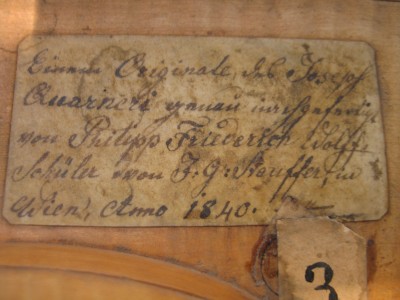 Einem Originale des Josepf
Quarneri genau
von Philipp Friederich Wolff
Schüler von J. G. Stauffer, in
Wien, Anno 1840.
3